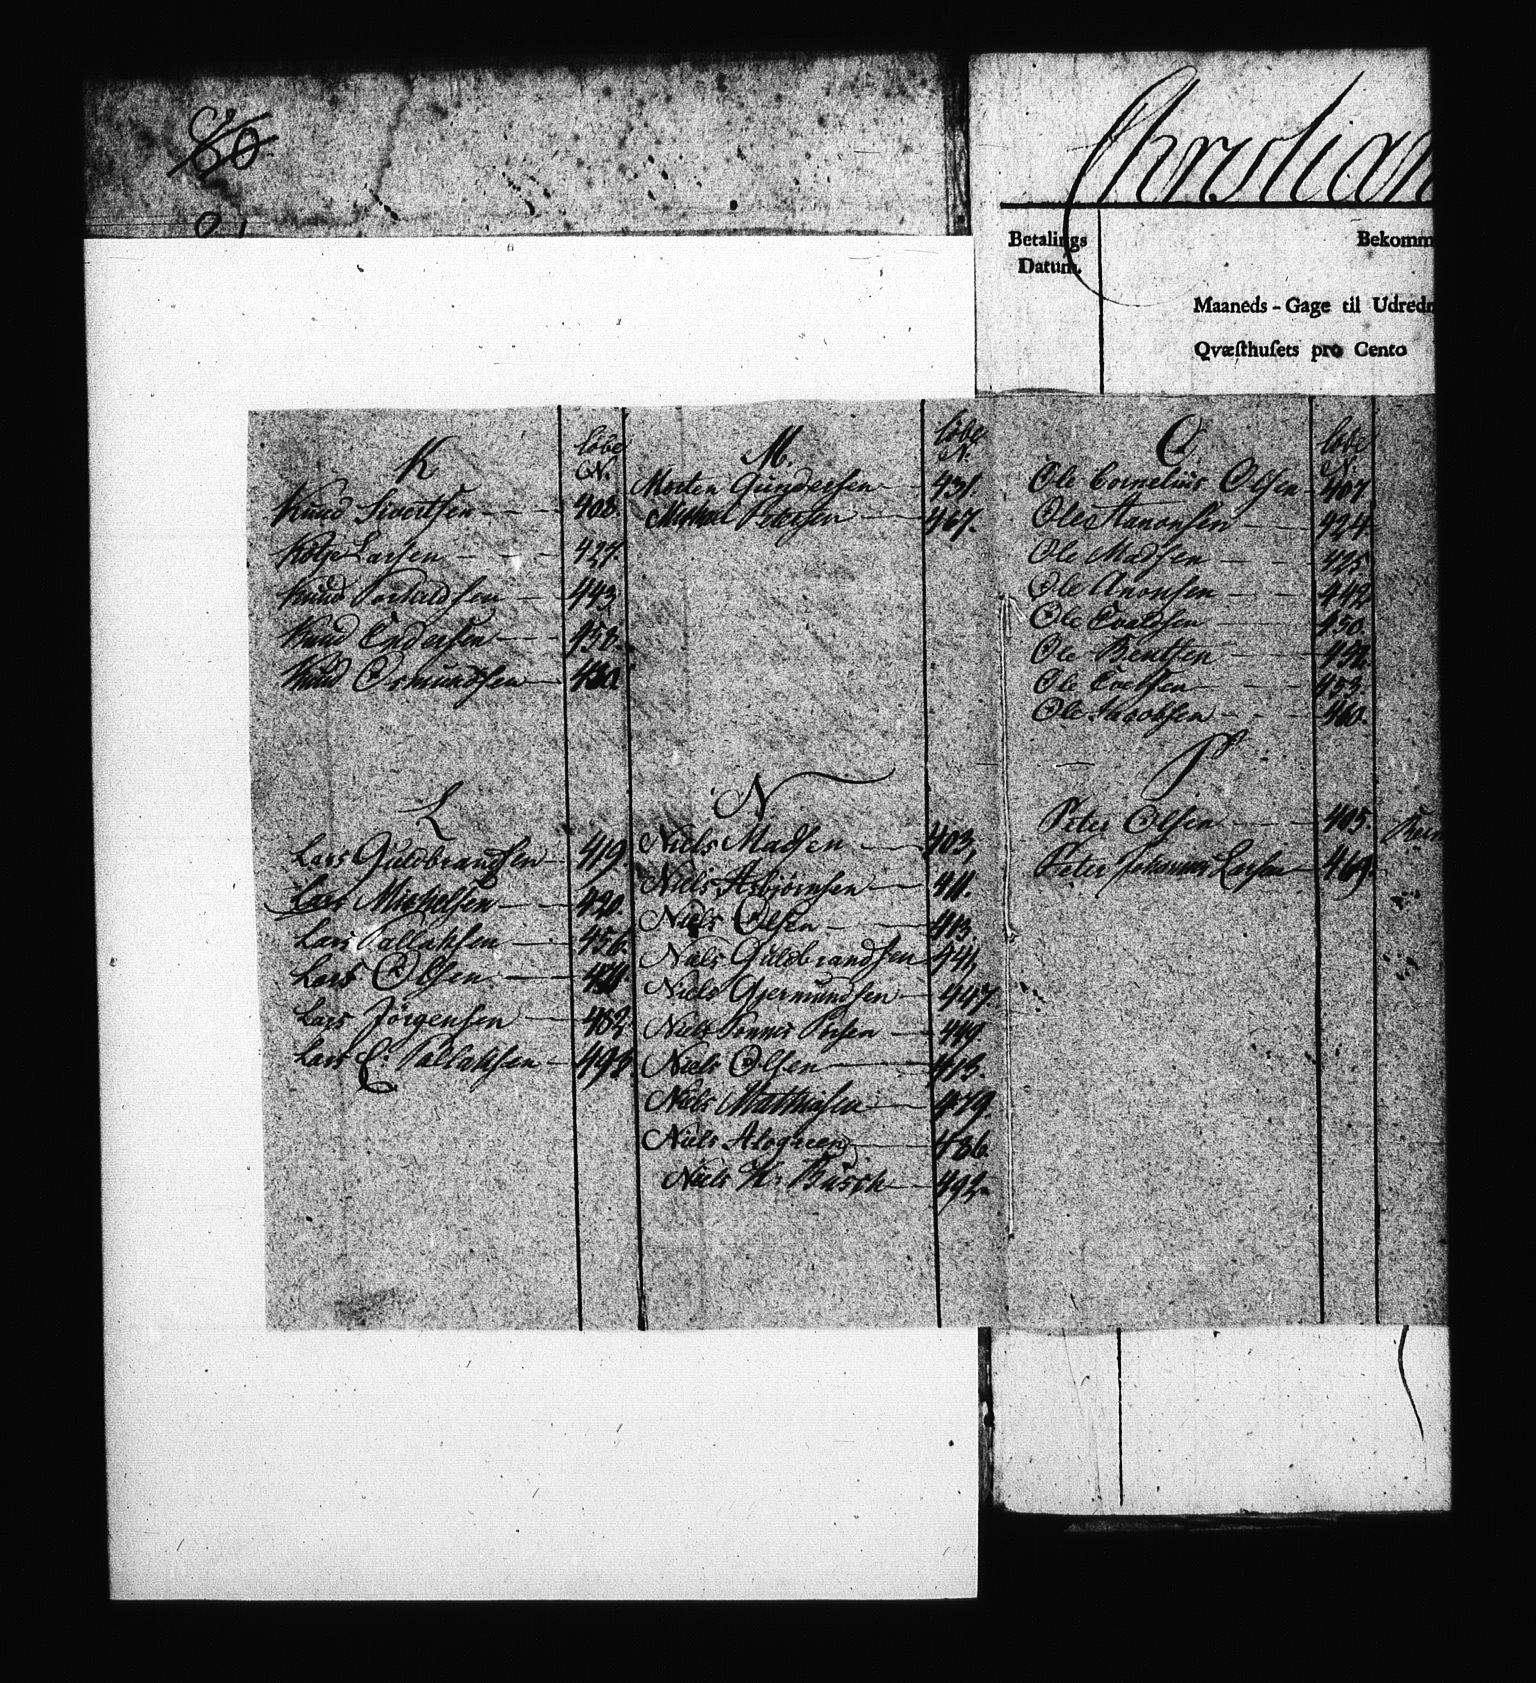 60
Christian
Betalings
Datum.
Bekomm
Maaneds-Gage til Udredn
Qvæsthusets pro Cento
K
Løbe
N.
Knud Sivertsen 408
Larsen 427
Knud 443
Knud Endersen 458.
Knud Osmundsen
L
Lars Guldbrandsen 419
Lars Michelsen 420.
Lars Tallaksen 456.
Lars Olsen
Lars Jörgensen 482
Lars C. Tallaksen 498.
M.
Løbe
N.
Morten Gundersen 431.
Michael Petersen 467.
N
Niels Madsen 403,
Niels Asbjørnsen 411.
Niels Olsen 413
Niels Guldbrandsen 441,
Niels Gjermundsen 447.
Niels 449
Niels Olsen 413.
Niels Matthiasen 479.
Niels 486
Niels K. Busch 492.
O
Løbe
N.
Ole Cornelius Olsen 407
Ole Aanonsen 424
Ole Madsen 425
Ole Anonsen 442
Ole 450.
Ole Bentsen 452.
Ole 453.
Ole Jacobsen 460.
P
Peter Olsen 405.
Peter Johannes Larsen 469.